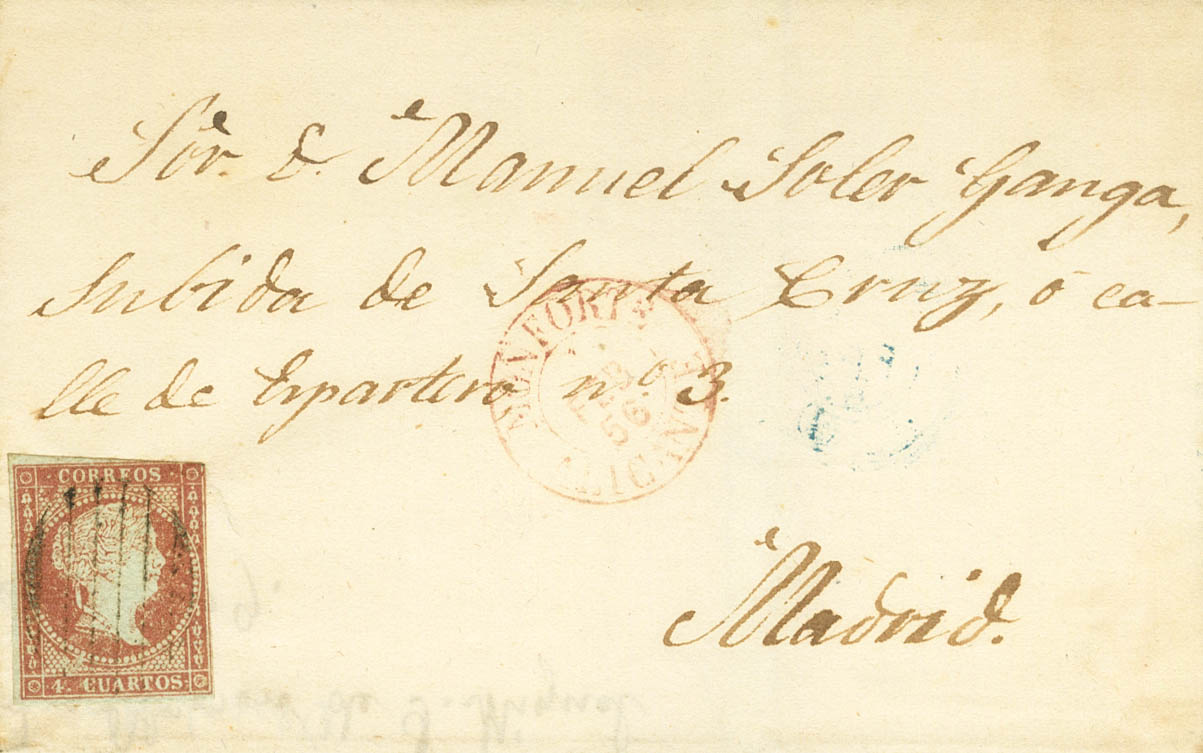 Sör. D. Manuel Soler Ganga,
Subida de Santa Cruz, ó ca-
lle de Espartero nº. 3.
Madrid.
MONFORTE
56
ALICANTE
CORREOS
4. CUARTOS.